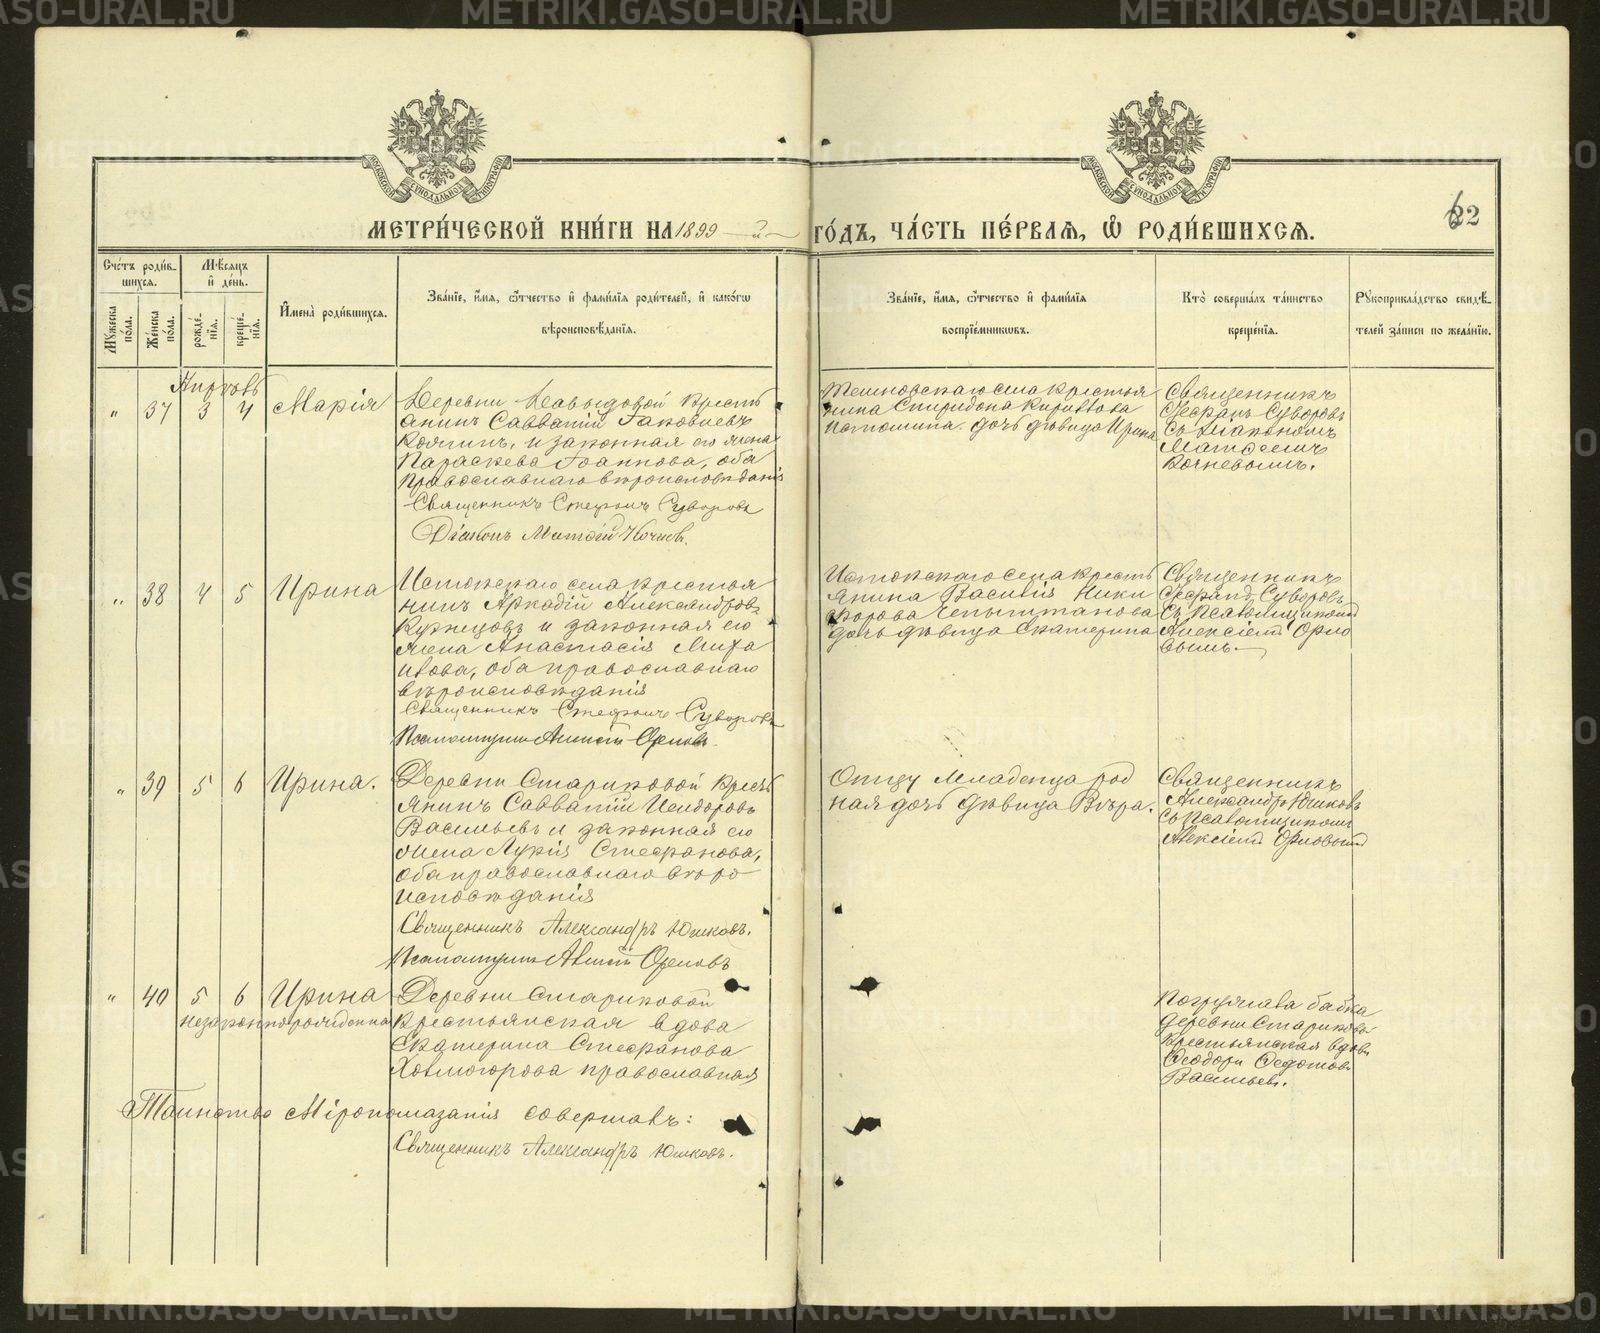 METRIKI.GASO-URAL.RU
МОСКОВСКОЙ СѴНОДАЛЬНОЙ ТИПОГРАФІИ
МЕТРИ́ЧЕСКОЙ КНИ́ГИ НА 1899 го́дъ, ча́сть пе́рвая, ѡ҆ роди́вшихся.
62
Сче́тъ роди́вшихся.
Му́жеска по́ла.
Же́нска по́ла.
Мѣ́сяцъ и҆ де́нь.
рожде́нїя.
креще́нїя.
И҆мена̀ роди́вшихся.
Зва́нїе, и҆́мя, ѻ҆́тчество и҆ фами́лїя роди́телей, и҆ како́гѡ
вѣроисповѣ́данїя.
Зва́нїе, и҆́мя, ѻ҆́тчество и҆ фами́лїя
воспрїе́мникѡвъ.
Кто̀ соверша́лъ та́инство
креще́нїя.
Рꙋкоприкла́дство свидѣ́телей за́писи по жела́нїю.
„ 37 3 4 Марія
Деревни Давыдовой кресть
янинъ Савватій Іаковлевъ
и законная его жена
Параскева Іоаннова, оба
православнаго вѣроисповѣданія
Священникъ Стефанъ Суворовъ
Діаконъ Матѳій Кочневъ.
села крестья
нина Спиридона Кириллова
Истомина дочь дѣвица Ирина
Священникъ
Стефанъ Суворовъ
съ діакономъ
Матѳіемъ
Кочневымъ.
„ 38 4 5 Ирина
Истокскаго села крестья
нинъ Аркадій Александровъ
Кузнецовъ и законная его
жена Анастасія Миха
илова, оба православнаго
вѣроисповѣданія
Священникъ Стефанъ Суворовъ
Псаломщикъ Алексій Орловъ.
Истокскаго села кресть
янина Василія Ники
форова Чепыштанова
дочь дѣвица Екатерина
Священникъ
Стефанъ Суворовъ
съ псаломщикомъ
Алексіемъ Орло
вымъ.
„ 39 5 6 Ирина.
Деревни Стариковой кресть
янинъ Савватій Исидоровъ
Васильевъ и законная его
жена Лукія Стефанова,
оба православнаго вѣро
исповѣданія
Священникъ Александръ Юшковъ.
Псаломщикъ Алексій Орловъ
Отцу младенца род
ная дочь дѣвица Вѣра.
Священникъ
Александръ Юшковъ
съ псаломщикомъ
Алексіемъ Орловымъ
„ 40 5 6 Ирина
незаконнорожденна
Деревни Стариковой
крестьянская вдова
Екатерина Стефанова
Холмогорова православная
Погружала бабка
деревни Стариковой
крестьянская вдова
Ѳеодора Ѳедотова
Васильева.
Таинство Мѵропомазанія совершалъ:
Священникъ Александръ Юшковъ.